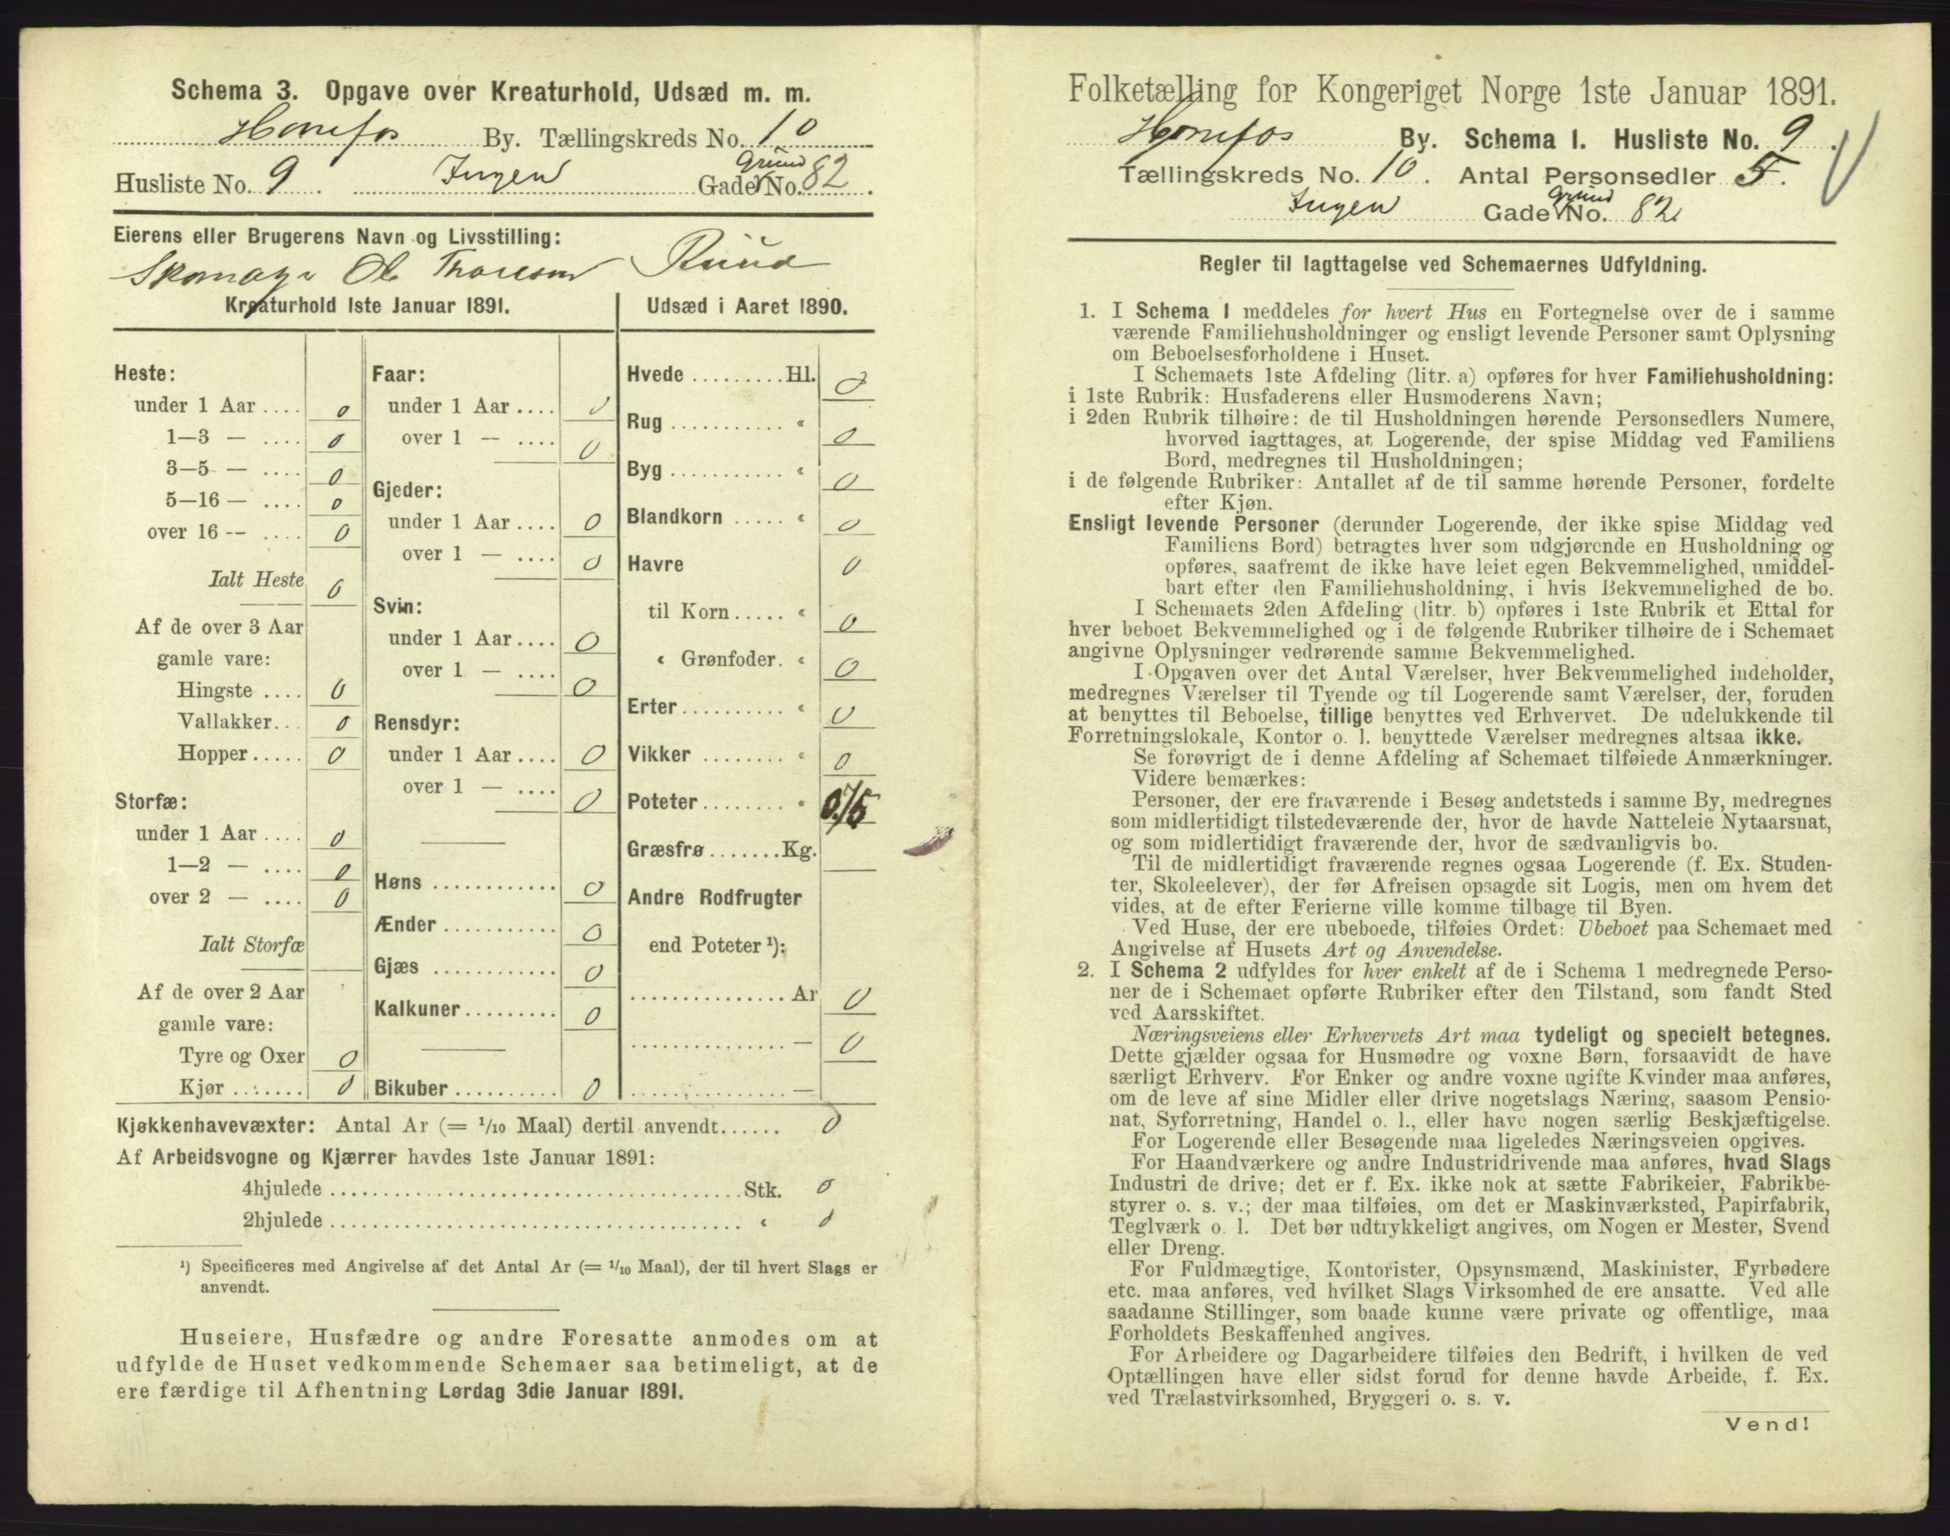 Schema 3. Opgave over Kreaturhold, Udsæd m. m.
Hønefos By. Tællingskreds No. 10
Husliste No. 9. Ingen Gade No. 82.
Grund
Eierens eller Brugerens Navn og Livsstilling:
Skomager Ole Thoresen Ruud
Kreaturhold 1ste Januar 1891.
Heste:
under 1 Aar .... 0
1—3 — .... 0
3—5 — .... 0
5—16 — .... 0
over 16 — .... 0
Ialt Heste 0
Af de over 3 Aar
gamle vare:
Hingste .... 0
Vallakker.. 0
Hopper ..... 0
Storfæ:
under 1 Aar .... 0
1—2 — .... 0
over 2 — .... 0
Ialt Storfæ
Af de over 2 Aar
gamle vare:
Tyre og Oxer 0
Kjør ....... 0
Faar:
under 1 Aar .... 0
over 1 — .... 0
Gjeder:
under 1 Aar .... 0
over 1 — .... 0
Svin:
under 1 Aar .... 0
over 1 — .... 0
Rensdyr:
under 1 Aar .... 0
over 1 — .... 0
Høns ............ 0
Ænder ........... 0
Gjæs ............ 0
Kalkuner ......... 0
Bikuber .......... 0
Udsæd i Aaret 1890.
Hvede ......... Hl. 0
Rug ........... « 0
Byg ........... « 0
Blandkorn ..... « 0
Havre 0
til Korn ..... « 0
« Grønfoder. « 0
Erter .......... « 0
Vikker ........ « 0
Poteter ........ « 0.75
Græsfrø ....... Kg.
Andre Rodfrugter
end Poteter ¹):
............... Ar 0
............... — 0
............... —
Kjøkkenhavevæxter: Antal Ar (= 1/10 Maal) dertil anvendt...... 0
Af Arbeidsvogne og Kjærrer havdes 1ste Januar 1891:
4hjulede ....................................... Stk. 0
2hjulede ....................................... « 0
¹) Specificeres med Angivelse af det Antal Ar (= 1/10 Maal), der til hvert Slags er
anvendt.
Huseiere, Husfædre og andre Foresatte anmodes om at
udfylde de Huset vedkommende Schemaer saa betimeligt, at de
ere færdige til Afhentning Lørdag 3die Januar 1891.
Folketælling for Kongeriget Norge 1ste Januar 1891.
Hønefos By. Schema 1. Husliste No. 9.
Tællingskreds No. 10. Antal Personsedler 5.
Ingen Gade No. 82
Grund
Regler til Iagttagelse ved Schemaernes Udfyldning.
1. I Schema 1 meddeles for hvert Hus en Fortegnelse over de i samme
værende Familiehusholdninger og ensligt levende Personer samt Oplysning
om Beboelsesforholdene i Huset.
I Schemaets 1ste Afdeling (litr. a) opføres for hver Familiehusholdning:
i 1ste Rubrik: Husfaderens eller Husmoderens Navn;
i 2den Rubrik tilhøire: de til Husholdningen hørende Personsedlers Numere,
hvorved iagttages, at Logerende, der spise Middag ved Familiens
Bord, medregnes til Husholdningen;
i de følgende Rubriker: Antallet af de til samme hørende Personer, fordelte
efter Kjøn.
Ensligt levende Personer (derunder Logerende, der ikke spise Middag ved
Familiens Bord) betragtes hver som udgjørende en Husholdning og
opføres, saafremt de ikke have leiet egen Bekvemmelighed, umiddel-
bart efter den Familiehusholdning, i hvis Bekvemmelighed de bo.
I Schemaets 2den Afdeling (litr. b) opføres i 1ste Rubrik et Ettal for
hver beboet Bekvemmelighed og i de følgende Rubriker tilhøire de i Schemaet
angivne Oplysninger vedrørende samme Bekvemmelighed.
I Opgaven over det Antal Værelser, hver Bekvemmelighed indeholder,
medregnes Værelser til Tyende og til Logerende samt Værelser, der, foruden
at benyttes til Beboelse, tillige benyttes ved Erhvervet. De udelukkende til
Forretningslokale, Kontor o. l. benyttede Værelser medregnes altsaa ikke.
Se forøvrigt de i denne Afdeling af Schemaet tilføiede Anmærkninger.
Videre bemærkes:
Personer, der ere fraværende i Besøg andetsteds i samme By, medregnes
som midlertidigt tilstedeværende der, hvor de havde Natteleie Nytaarsnat,
og som midlertidigt fraværende der, hvor de sædvanligvis bo.
Til de midlertidigt fraværende regnes ogsaa Logerende (f. Ex. Studen-
ter, Skoleelever), der før Afreisen opsagde sit Logis, men om hvem det
vides, at de efter Ferierne ville komme tilbage til Byen.
Ved Huse, der ere ubeboede, tilføies Ordet: Ubeboet paa Schemaet med
Angivelse af Husets Art og Anvendelse.
2. I Schema 2 udfyldes for hver enkelt af de i Schema 1 medregnede Perso-
ner de i Schemaet opførte Rubriker efter den Tilstand, som fandt Sted
ved Aarsskiftet.
Næringsveiens eller Erhvervets Art maa tydeligt og specielt betegnes.
Dette gjælder ogsaa for Husmødre og voxne Børn, forsaavidt de have
særligt Erhverv. For Enker og andre voxne ugifte Kvinder maa anføres,
om de leve af sine Midler eller drive nogetslags Næring, saasom Pensio-
nat, Syforretning, Handel o. l., eller have nogen særlig Beskjæftigelse.
For Logerende eller Besøgende maa ligeledes Næringsveien opgives.
For Haandværkere og andre Industridrivende maa anføres, hvad Slags
Industri de drive; det er f. Ex. ikke nok at sætte Fabrikeier, Fabrikbe-
styrer o. s. v.; der maa tilføies, om det er Maskinværksted, Papirfabrik,
Teglværk o. l. Det bør udtrykkeligt angives, om Nogen er Mester, Svend
eller Dreng.
For Fuldmægtige, Kontorister, Opsynsmænd, Maskinister, Fyrbødere
etc. maa anføres, ved hvilket Slags Virksomhed de ere ansatte. Ved alle
saadanne Stillinger, som baade kunne være private og offentlige, maa
Forholdets Beskaffenhed angives.
For Arbeidere og Dagarbeidere tilføies den Bedrift, i hvilken de ved
Optællingen have eller sidst forud for denne havde Arbeide, f. Ex.
ved Trælastvirksomhed, Bryggeri o. s. v.
Vend!